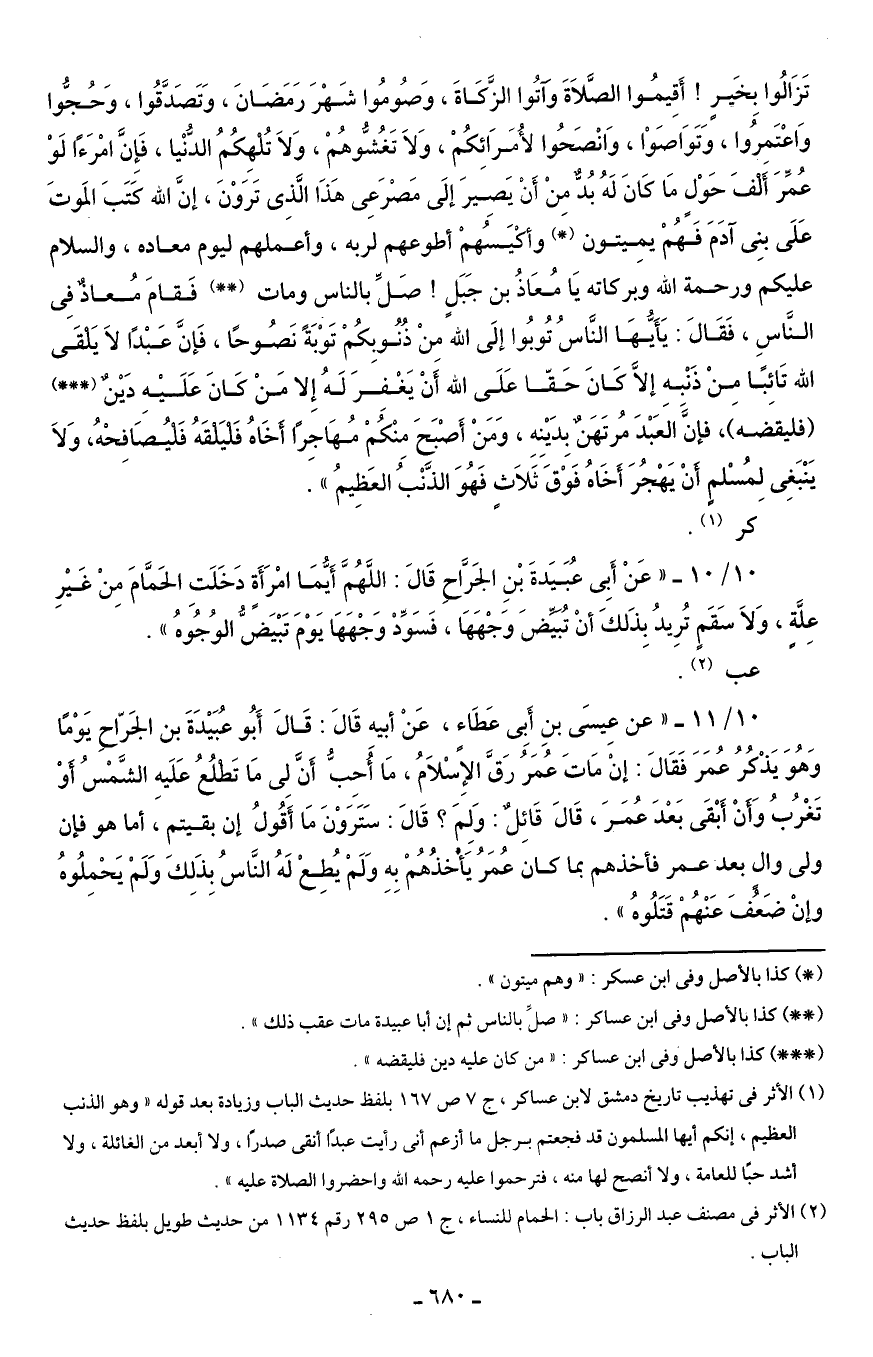 تَزَالُوا بِخَيرٍ ! أَقِيمُوا الصَّلَاةَ وَآتُوا الزَّكَاةَ ، وَصُومُوا شَهْرَ رَمَضَانَ ، وَتَصَدَّقُوا ، وَحُجُّوا
وَاعْتَمِرُوا ، وَتَوَاصَوْا ، وَانْصَحُوا لأُمَرَائِكُمْ ، وَلَا تَغُشُّوهُمْ ، وَلَا تُلْهِكُمُ الدُّنْيا ، فَإِنَّ امْرَءًا لَوْ
عُمِّرَ أَلْفَ حَوْلٍ مَا كَانَ لَهُ بُدٌّ مِنْ أَنْ يَصِيرَ إِلَى مَصْرَعِى هَذَا الَّذِى تَرَوْنَ ، إِنَّ الله كَتَبَ الموتَ
عَلَى بنِى آدَمَ فَهُمْ يميتون (*) وأكْيَسُهُمْ أطوعهم لربه ، وأعملهم ليوم معاده ، والسلام
عليكم ورحمة الله وبركاته يَا مُعَاذُ بن جَبَلٍ ! صَلِّ بالناس ومات (**) فَقامَ مُعاذٌ فِى
النَّاسِ ، فَقَالَ : يَأَيُّهَا النَّاسُ تُوبُوا إِلَى الله مِنْ ذُنُوبِكُمْ تَوْبَةً نَصُوحًا ، فَإِنَّ عَبْدًا لَا يَلْقَى
الله تَائِبًا مِنْ ذَنْبِه إِلاَّ كَانَ حَقًا عَلَى الله أَنْ يَغْفِرَ لَهُ إلا مَنْ كَانَ عَلَيْه دَيْنٌ (***)
(فليقضه)، فإِنَّ العَبْدَ مُرتَهَنٌ بِدَيْنِه ، وَمَنْ أَصْبَحَ مِنْكُمْ مُهاجِرًا أَخَاهُ فَلْيَلْقَهُ فَلْيُصَافِحْهُ، وَلَا
يَنْبَغِى لِمُسْلمٍ أَنْ يَهْجُرَ أَخَاهُ فَوْقَ ثَلَاثٍ فَهُوَ الذَّنْبُ العَظِيمُ » .
كر (١) .
١٠/١٠ ـ « عَنْ أَبِى عُبَيدَةَ بْنِ الجَرَّاحِ قَالَ : اللَّهُمَّ أَيُّمَا امْرَأَةٍ دَخَلَتِ الحَمَّامَ مِنْ غَيْرِ
عِلَّةٍ ، وَلَا سَقَمٍ تُرِيدُ بِذَلِكَ أنْ تُبَيِّضَ وَجْهَهَا ، فَسَوِّدْ وَجْهَهَا يَوْمَ تَبْيَضُّ الوُجُوهُ » .
عب (٢) .
١١/١٠ ـ « عن عِيسَى بنِ أَبِى عَطَاء ، عَنْ أبيه قَالَ : قَالَ أَبُو عبُيْدَةَ بن الجَرّاحِ يَوْمًا
وَهُوَ يَذْكُرُ عُمَرَ فَقَالَ : إِنْ مَاتَ عُمَرُ رَقَّ الإِسْلَامُ ، مَا أُحِبُّ أَنَّ لِى مَا تَطْلُعُ عَلَيه الشَّمْسُ أَوْ
تَغْرُبُ وَأَنْ أَبْقَى بَعْدَ عُمَرَ ، قَالَ قَائِلٌ : وَلِمَ ؟ قَالَ : سَتَرَوْنَ مَا أَقُولُ إن بقيتم ، أما هو فإن
ولى والٍ بعد عمر فأخذهم بما كان عُمَرُ يَأْخُذُهُمْ بِهِ وَلَمْ يُطِعْ لَهُ النَّاسُ بِذَلِكَ وَلَمْ يَحْمِلُوهُ
وإِنْ ضَعُفَ عَنْهُمْ قَتَلُوهُ » .
(*) كذا بالأصل وفى ابن عسكر : « وهم ميتون » .
(**) كذا بالأصل وفى ابن عساكر : « صلِّ بالناس ثم إن أبا عبيدة مات عقب ذلك » .
(***) كذا بالأصل وفى ابن عساكر : « من كان عليه دين فليقضه » .
(١) الأثر فى تهذيب تاريخ دمشق لابن عساكر ، ج ٧ ص ١٦٧ بلفظ حديث الباب وزيادة بعد قوله « وهو الذنب
العظيم ، إنكم أيها المسلمون قد فجعتم برجل ما أزعم أنى رأيت عبدًا أنقى صدرًا ، ولا أبعد من الغائلة ، ولا
أشد حبًا للعامة ، ولا أنصح لها منه ، فترحموا عليه رحمه الله واحضروا الصلاة عليه » .
(٢) الأثر فى مصنف عبد الرزاق باب : الحمام للنساء ، ج ١ ص ٢٩٥ رقم ١١٣٤ من حديث طويل بلفظ حديث
الباب .
ـ ٦٨٠ ـ